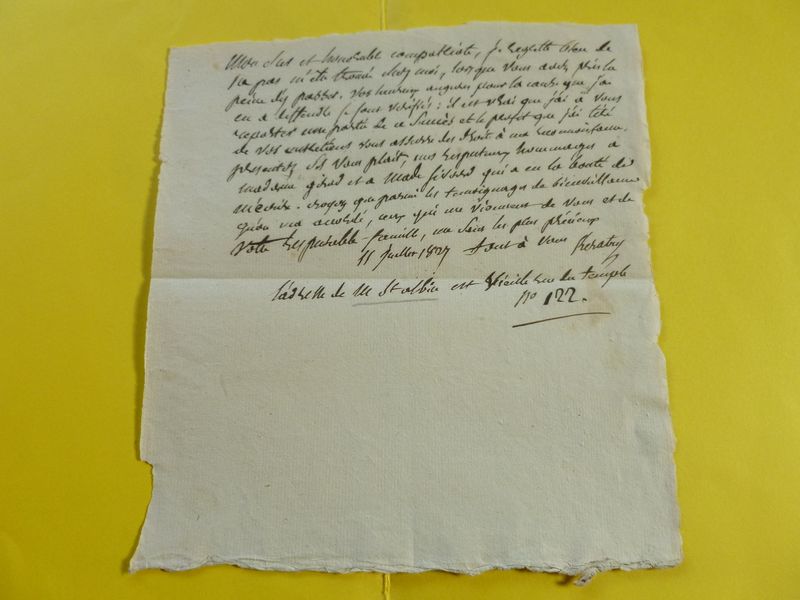 Mon cher et honorable compatriote, je regrette bien de
ne pas m'être trouvé chez moi, lorsque vous avez pris la
peine d'y passer. Vos heureux augures pour la cause que j'ai
eu à deffendre se sont vérifiés : il est vrai que j'ai à vous
reporter une partie de ce succès et le profit que j'ai tiré
de vos entretiens vous assure des droit à ma reconnaissance.
présentez, s'il vous plait, mes respectueux hommages à
madame girod et a made qui a eu la bonté de
m'écrire. croyez que parmi les temoignages de bienveillance
qu'on m'a accordé, ceux qui me viennent de vous et de
votre respectable famille, me sont les plus précieux
11 juillet 1827 tout à vous Kératry
l'adresse de M St albin est Vieille rue du temple
no 122.